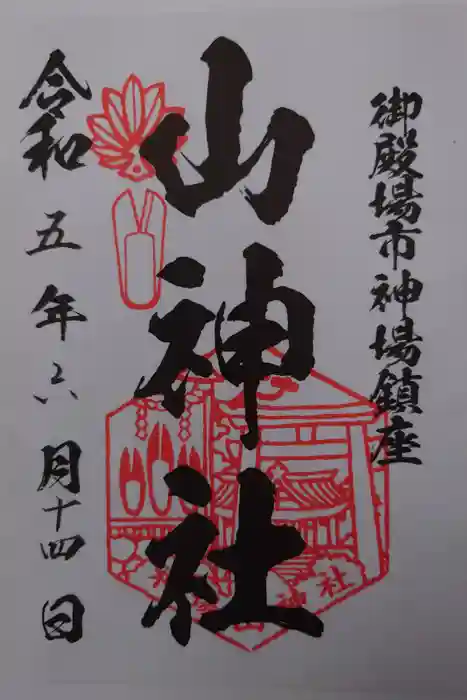 御殿場市神場鎮座
山神社
令和五年六月十四日